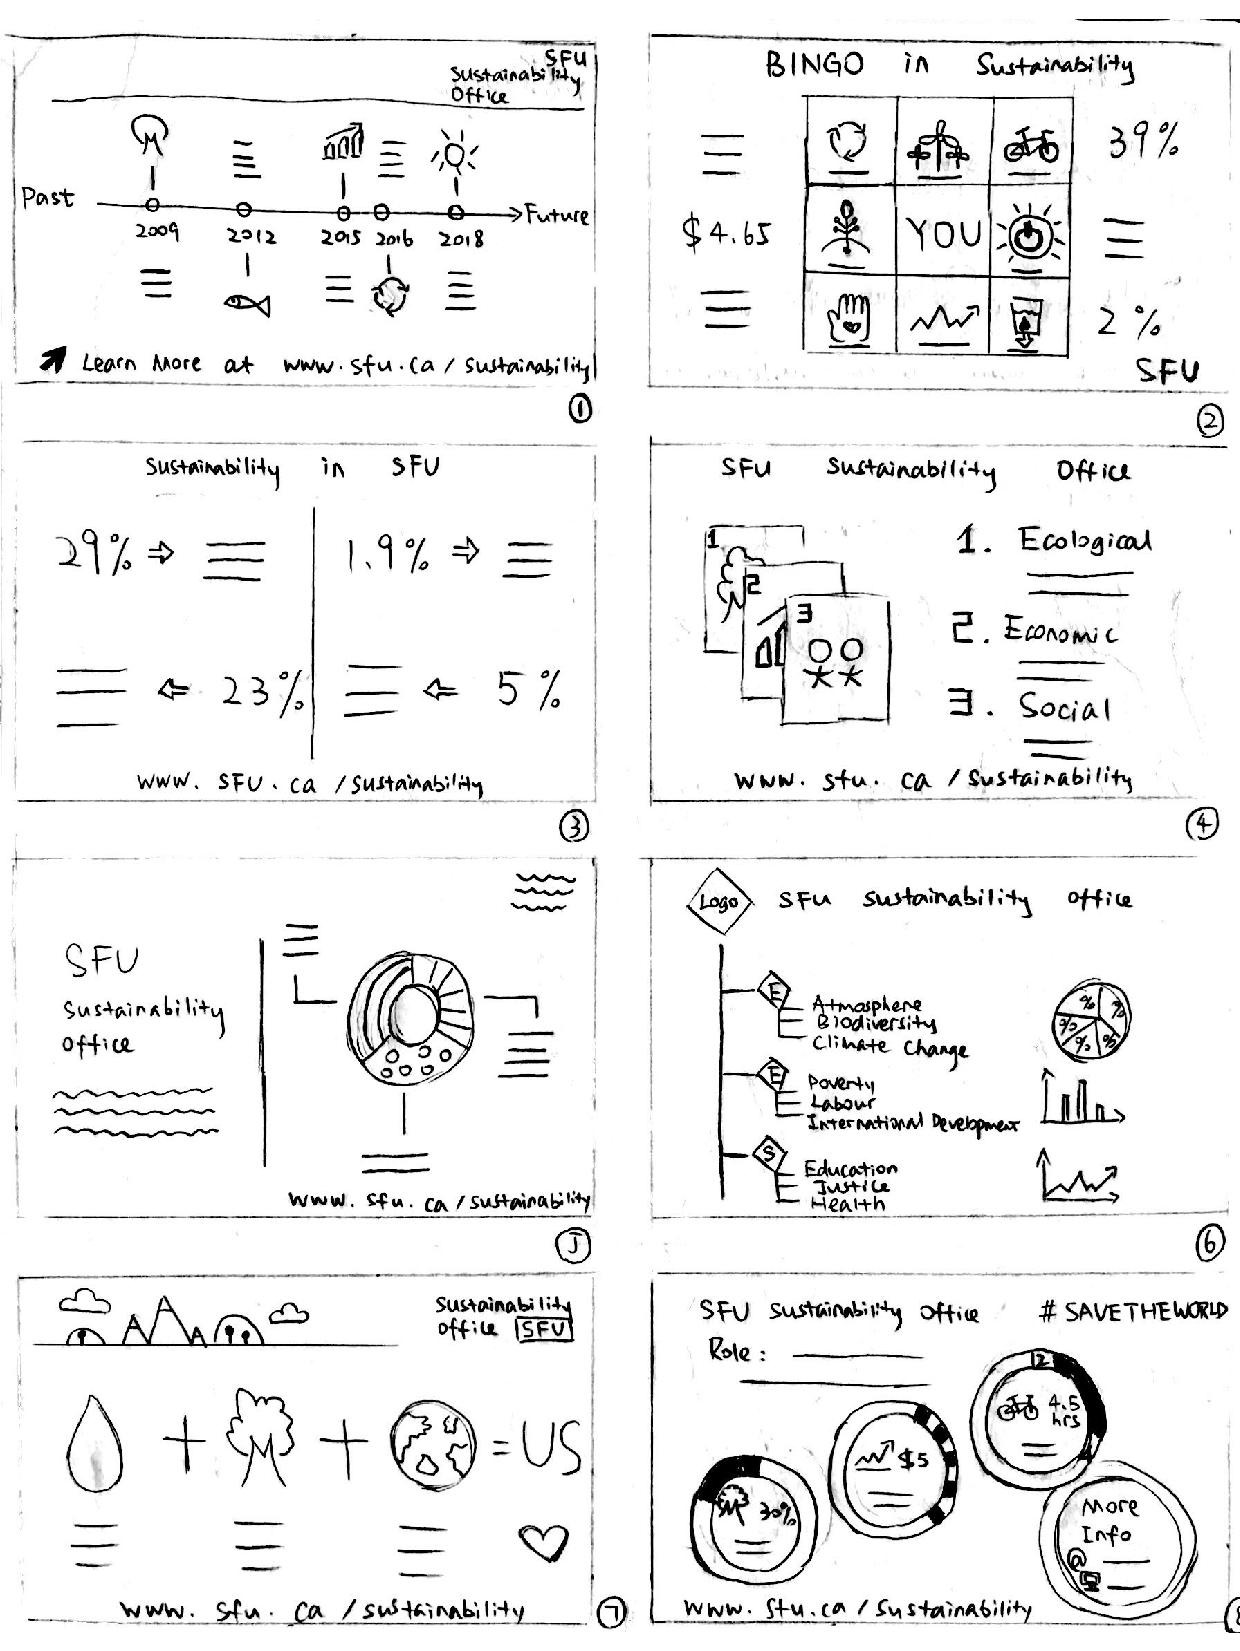 SFU
Sustainability
Office
Past
Future
2009
2012
2015
2016
2018
Learn More at www.sfu.ca/sustainability
1
BINGO in Sustainability
39%
$4.65
YOU
2%
SFU
2
Sustainability in SFU
29%
1.9%
23%
5%
www.SFU.ca/sustainability
3
SFU Sustainability Office
1
2
3
1. Ecological
2. Economic
3. Social
www.sfu.ca/sustainability
4
SFU
Sustainability
Office
www.sfu.ca/sustainability
5
Logo
SFU sustainability office
E
Atmosphere
Biodiversity
Climate Change
% % % % %
E
Poverty
Labour
International Development
S
Education
Justice
Health
6
Sustainability
office SFU
+ + = US
www.sfu.ca/sustainability
7
SFU sustainability office #SAVETHEWORLD
Role:
30%
$5
12
4.5
hrs
More
Info
@
www.sfu.ca/sustainability
8